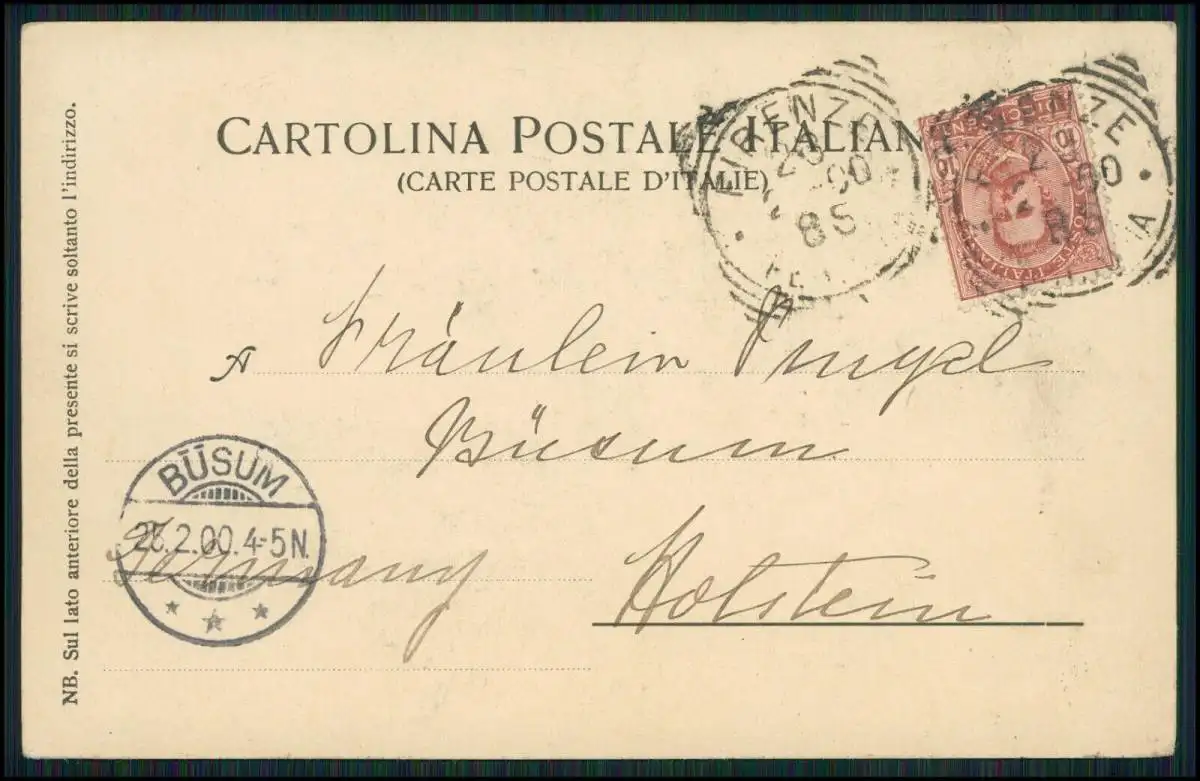 CARTOLINA POSTALE ITALIANA
(CARTE POSTALE D'ITALIE)
FIRENZE
20
00
8S
FIRENZE
2 00
8S
A
Fräulein
Büsum
Holstein
Germany
BÜSUM
2.00.4-5N.
NB. Sul lato anteriore della presente si scrive soltanto l'indirizzo.